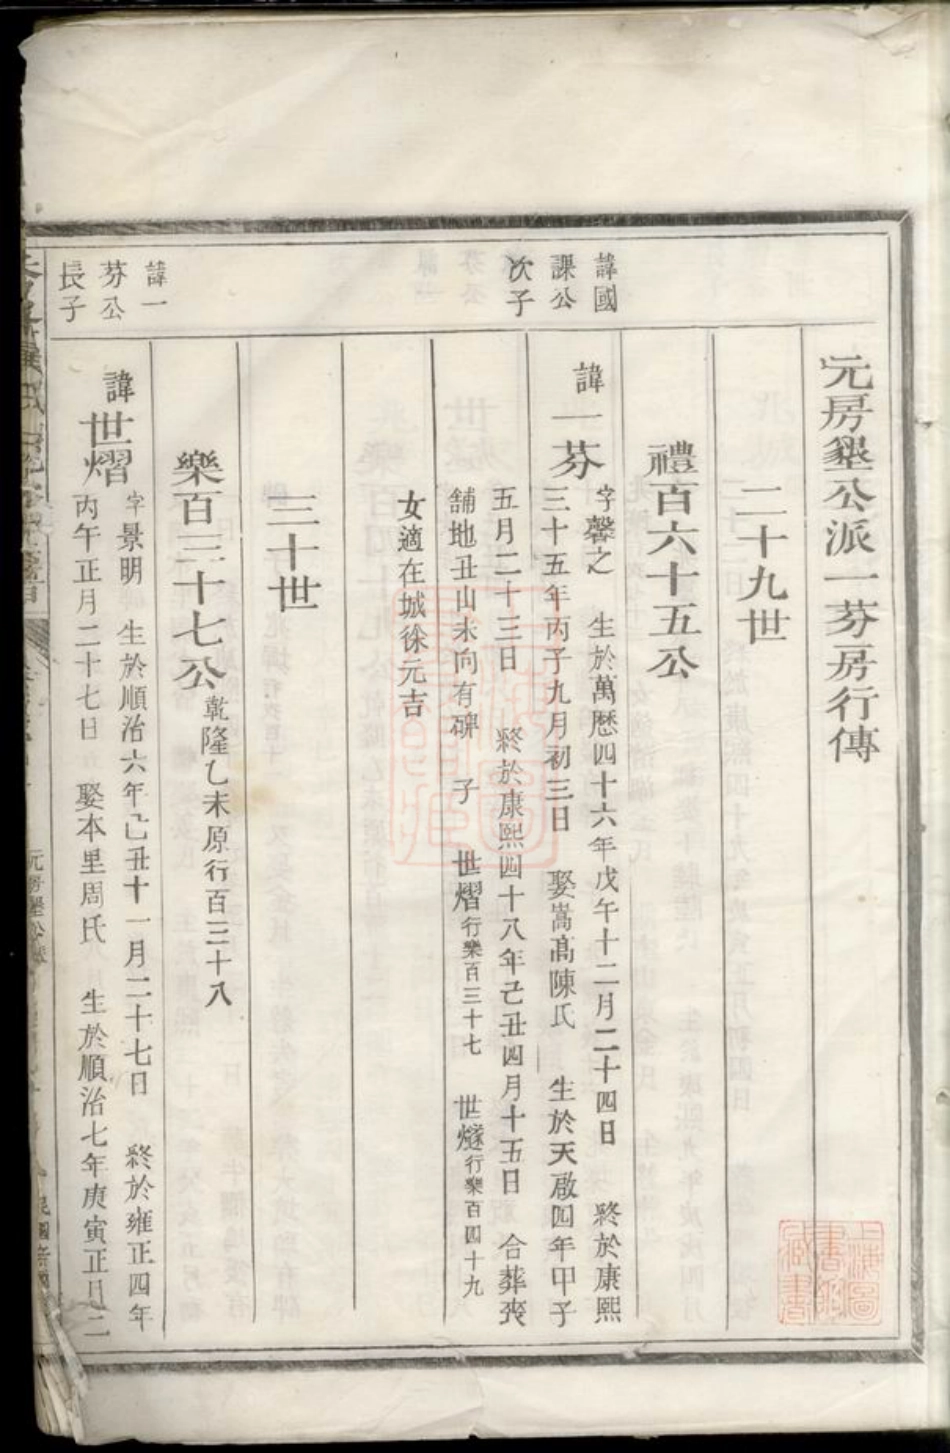 元房墾公派一芬房行傳
二十九世
禮百六十五公
諱國
課公
次子
諱一芬
字馨之 生於萬歷四十六年戊午十二月二十四日 終於康熙
三十五年丙子九月初三日 娶嵩高陳氏 生於天啟四年甲子
五月二十三日 終於康熙四十八年己丑四月十五日 合葬
舖地丑山未向有碑 子 世熠行樂百三十七 世燧行樂百四十九
女適在城徐元吉
三十世
樂百三十七公乾隆乙未原行百三十八
諱一
芬公
長子
諱世熠
字景明 生於順治六年己丑十一月二十七日 終於雍正四年
丙午正月二十七日 娶本里周氏 生於順治七年庚寅正月二
上海圖書館藏書